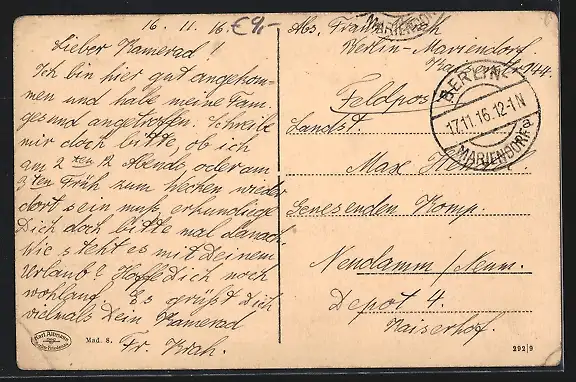 16. 11. 16.
€9,-
Lieber Kamerad!
Ich bin hier gut angekom-
men und habe meine Fam.
gesund angetroffen. Schreibe
mir doch bitte, ob ich
am 2ten 12 Abends oder am
3ten Früh zum Wecken wieder
dort sein muß, erkundige
Dich doch bitte mal danach.
Wie steht es mit Deinem
Urlaub? Hoffe Dich noch
wohlauf. Es grüßt Dich
vielmals Dein Kamerad
Fr. Krah.
Karl Altmann
Mad. 8.
Abs. Frau Krah
Berlin-Mariendorf
144.
MARIENDORF
Feldpost
BERLIN
17.11.16.12-1N
MARIENDORF a
Landst.
Max
Genesenden Komp.
Neudamm/Neum.
Depot 4.
Kaiserhof.
292|9